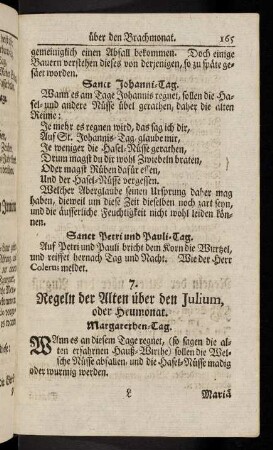 über den Brachmonat. 165
gemeiniglich einen Abfall bekommen. Doch einige
Bauern verstehen dieses von derjenigen, so zu späte ge-
säet worden.
Sanct Johanni-Tag.
Wann es am Tage Johannis regnet, sollen die Ha-
sel- und andere Nüsse übel gerathen, daher die alten
Reime:
Je mehr es regnen wird, das sag ich dir,
Auf St. Johannis-Tag, glaube mir,
Je weniger die Hasel-Nüsse gerathen,
Drum magst du dir wohl Zwiebeln braten,
Oder magst Rüben dafür essen,
Und der Hasel-Nüsse vergessen.
Welcher Aberglaube seinen Ursprung daher mag
haben, dieweil um diese Zeit dieselben noch zart seyn,
und die äusserliche Feuchtigkeit nicht wohl leiden kön-
nen.
Sanct Petri und Pauli-Tag.
Auf Petri und Pauli bricht dem Korn die Wurtzel,
und reiffet hernach Tag und Nacht. Wie der Herr
Colerus meldet.
7.
Regeln der Alten über den Julium,
oder Heumonat.
Margarethen-Tag.
Wann es an diesem Tage regnet, (so sagen die al-
ten erfahrnen Hauß-Wirthe) sollen die Wel-
sche Nüsse abfallen, und die Hasel-Nüsse madig
oder wurmig werden.
L Mariä